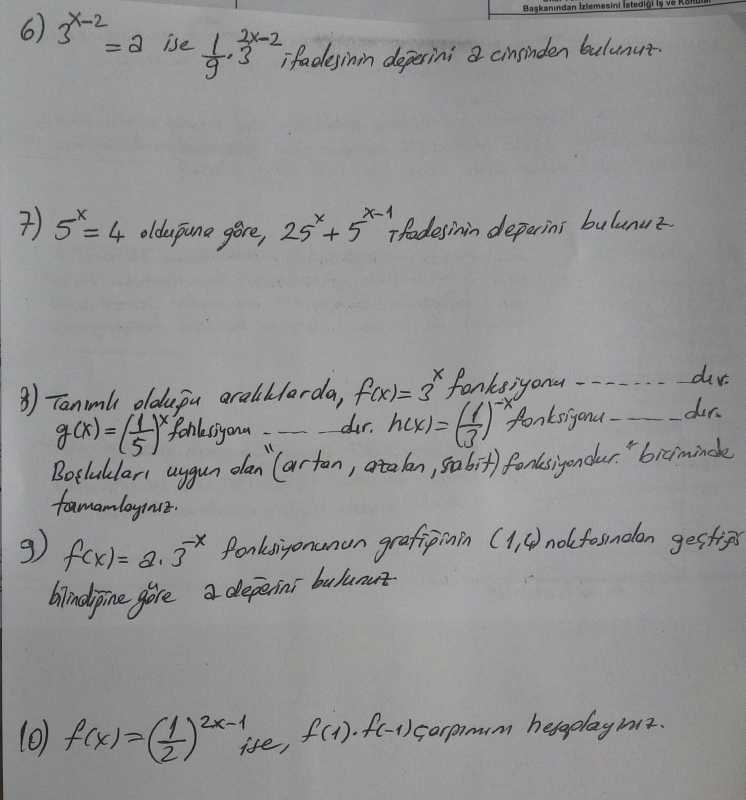 Başkanından İzlemesini İstediği İş ve Konular
6) 3^(x-2) = a ise 1/9 . 3^(2x-2) ifadesinin değerini a cinsinden bulunuz.
7) 5^x = 4 olduğuna göre, 25^x + 5^(x-1) ifadesinin değerini bulunuz.
8) Tanımlı olduğu aralıklarda, f(x) = 3^x fonksiyonu ------- dır.
g(x) = (1/5)^x fonksiyonu ---- dır. h(x) = (1/3)^(-x) fonksiyonu ----- dır.
Boşlukları uygun olan "(artan, azalan, sabit) fonksiyondur." biçiminde
tamamlayınız.
9) f(x) = a . 3^(-x) fonksiyonunun grafiğinin (1,4) noktasından geçtiği
bilindiğine göre a değerini bulunuz
10) f(x) = (1/2)^(2x-1) ise, f(1) . f(-1) çarpımını hesaplayınız.